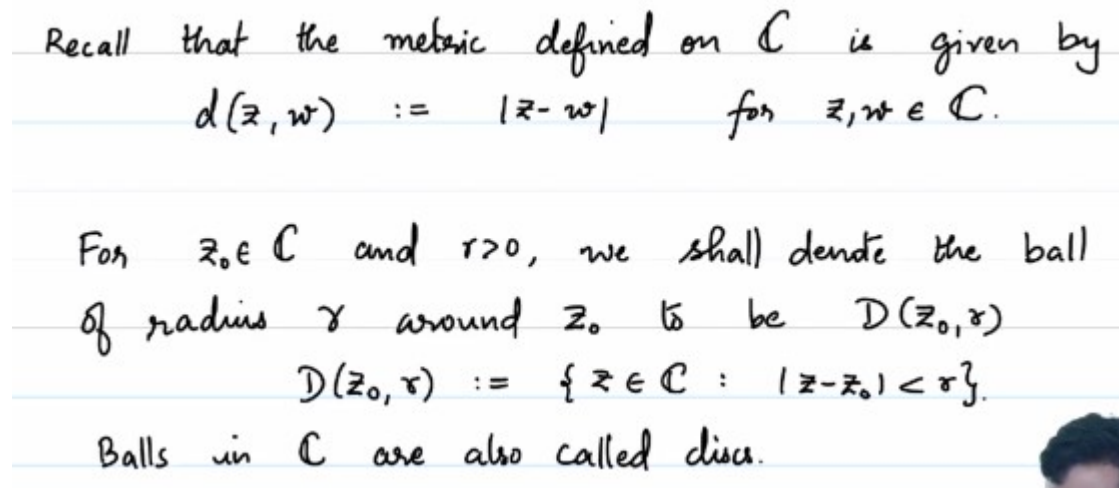 Recall that the metric defined on ℂ is given by
d(z, w) := |z - w| for z, w ∈ ℂ.
For z₀ ∈ ℂ and r>0, we shall denote the ball
of radius r around z₀ to be D(z₀, r)
D(z₀, r) := { z ∈ ℂ : |z - z₀| < r}.
Balls in ℂ are also called discs.